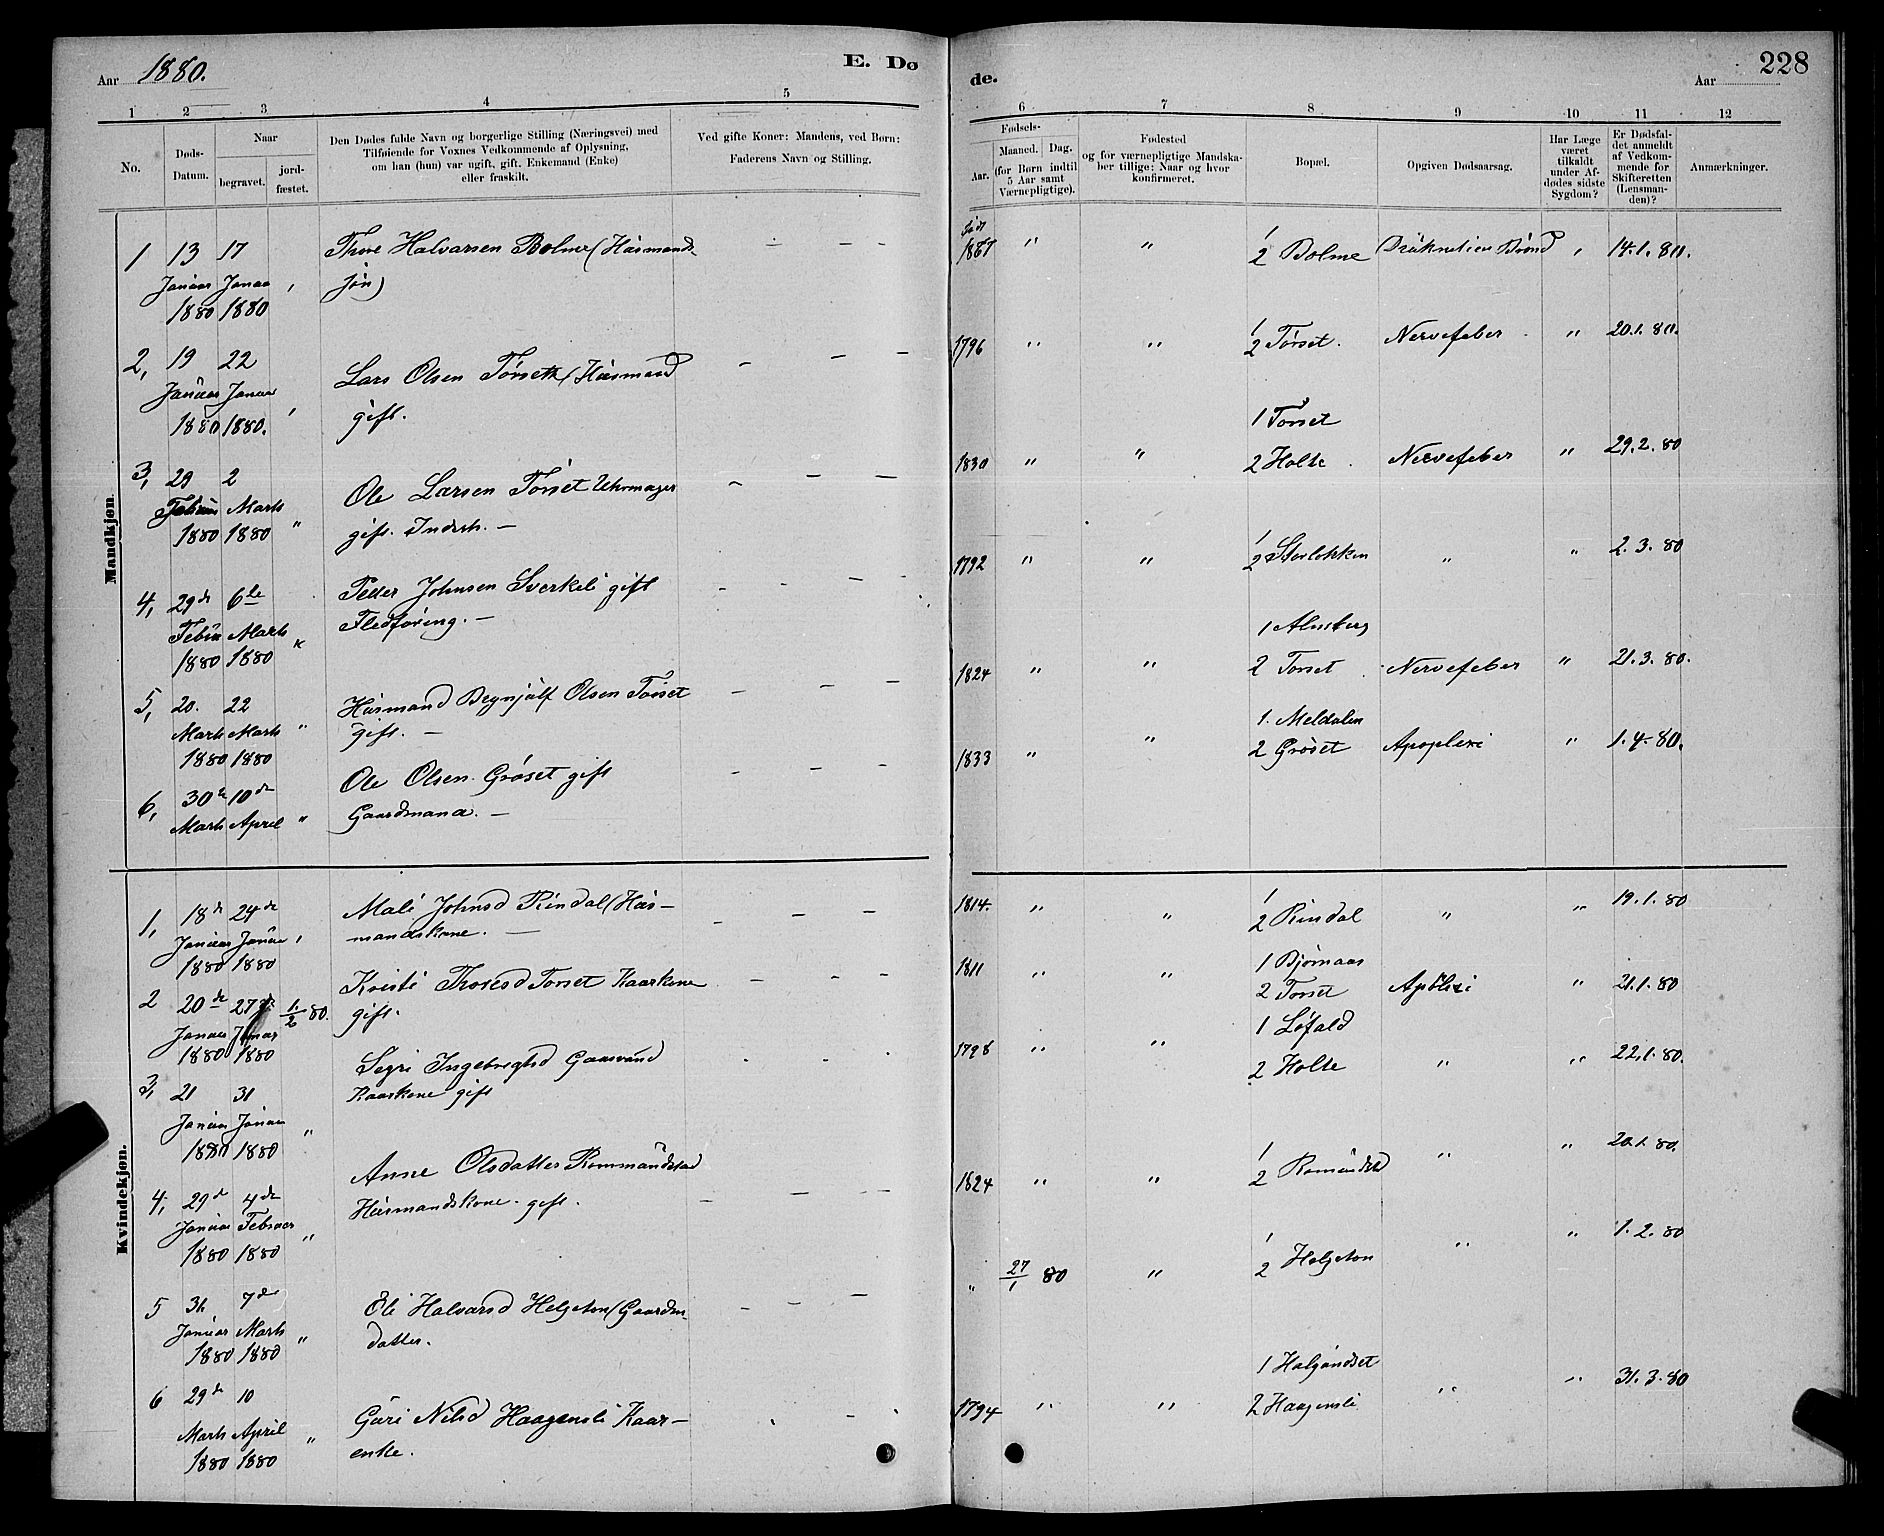 Aar 1880.
E. Dø
de.
Aar
228
1 2 3 4 5
6 7 8 9 10 11 12
No.
Døds-
Datum.
Naar
begravet.
jord-
fæstet.
Den Dødes fulde Navn og borgerlige Stilling (Næringsvei) med
Tilføiende for Voxnes Vedkommende af Oplysning,
om han (hun) var ugift, gift, Enkemand (Enke)
eller fraskilt.
Ved gifte Koner: Mandens, ved Børn:
Faderens Navn og Stilling.
Fødsels-
Aar.
Maaned. Dag.
(for Børn indtil
5 Aar samt
Værnepligtige).
Fødested
og for værnepligtige Mandska-
ber tillige: Naar og hvor
konfirmeret.
Bopæl.
Opgiven Dødsaarsag.
Har Læge
været
tilkaldt
under Af-
dødes sidste
Sygdom?
Er Dødsfal-
det anmeldt
af Vedkom-
mende for
Skifteretten
(Lensman-
den)?
Anmærkninger.
Mandkjøn.
1 13 17 Thore Halvarsen Bolme (Husmands-
Januar Janua søn)
1880 1880
1867 " " 1
2 Bolme , 14.1.80.
2, 19 22 Lars Olsen Tørseth (Husmand
Januar Januar gift.
1880 1880.
1796 " " 1
2 Torset. Nervefeber " 20.1.80.
3, 29 2 Ole Larsen Torset Uhrmager
Februar Marts gift. Inderh. —
1880 1880 "
1 Torset
1830 " " 2 Holte. Nervefeber " 29.2.80
4, 29de 6te Peder Johnsen Sverkeli gift
Febru Marts Fledføring. —
1880 1880
1792 " " 1
2 Storlokken " " 2.3.80
5, 20. 22 Husmand Brynjulf Olsen Torset
Marts Marts " gift. —
1880 1880
1
1824 " " 2 Torset. Nervefeber " 21.3.80.
6, 30te 10de Ole Olsen Grøset gift
Marts April " Gaardmand. —
1. Meldalen
1833 " " 2 Grøset Apoplexi " 1.4.80.
Kvindekjøn.
1, 18de 24de Mali Johnsd Rindal (Hus-
Januar Januar , mandskone. —
1880 1880
1814. " " 1
2 Rindal " " 19.1.80
2 20de 27de 1/2 80. Kristi Thoresd Torset Kaarkone
Januar Januar gift.
1880 1880
1811 " " 1 Bjørnaas
2 Torset " 21.1.80
3, 21 31 Ingebrigtsd Gaasvand
Januar Januar " Kaarkone gift
1880 1880
1 Løfald
1798 " " 2 Holte " " 22.1.80.
4, 29de 4de Anne Olsdatter Rommundstad
Januar Februar " Husmandskone. gift.
1880 1880
1824 " " 1
2 Romundstad " "
5 31. 7de Eli Halvarsd Helgeton (Gaardm-
Januar Marts " datter.
1880 1880
" 27/1 80 " 1
2 Helgeton " " 1.2.80
6 29de 10 Guri Nilsd Haagensli Kaar-
Marts April " enke.
1880 1880
1 Halgundset
1794 " " 2 Haagensli " " 31.3.80